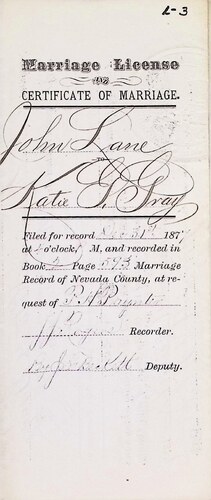 L-3
Marriage License
AND
CERTIFICATE OF MARRIAGE.
John Lane
TO
Katie G. Gray
Filed for record 31st 187
at o'clock, M, and recorded in
Book Page 573 Marriage
Record of Nevada County, at re-
quest of
Recorder.
Deputy.